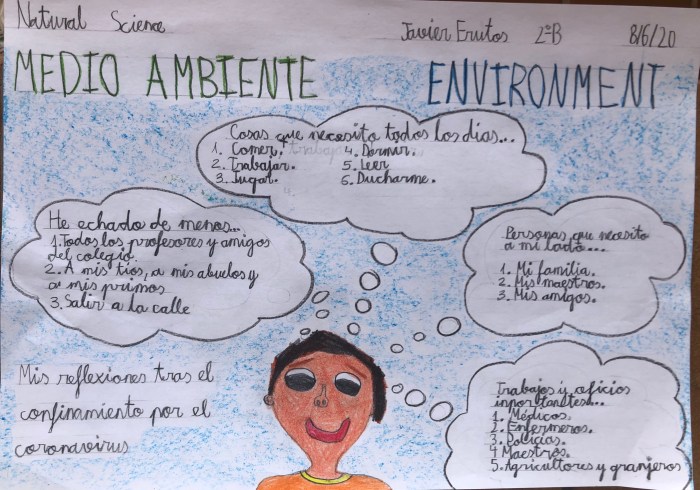 Natural Science
Javier Erutos 2ºB
8/6/20
MEDIO AMBIENTE
ENVIRONMENT
Cosas que necesito todos los días...
1. Comer.
2. Trabajar.
3. Jugar.
4. Dormir.
5. Leer
6. Ducharme.
He echado de menos...
1. Todos los profesores y amigos
del colegio.
2. A mis tios, a mis abuelos y
a mis primos
3. Salir a la calle
Personas que necesito
a mi lado...
1. Mi familia.
2. Mis maestros.
3. Mis amigos.
Mis reflexiones tras el
confinamiento por el
coronavirus
Trabajos y oficios
inportantes...
1. Médicos.
2. Enfermeros.
3. Policías.
4 Maestros.
5. Agricultores y granjeros